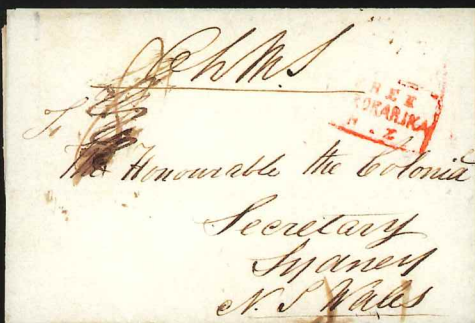 O h M S
FREE
KORARIKA
N. Z.
To
The Honourable the Colonia
Secretary
Sydney
N. S Wales